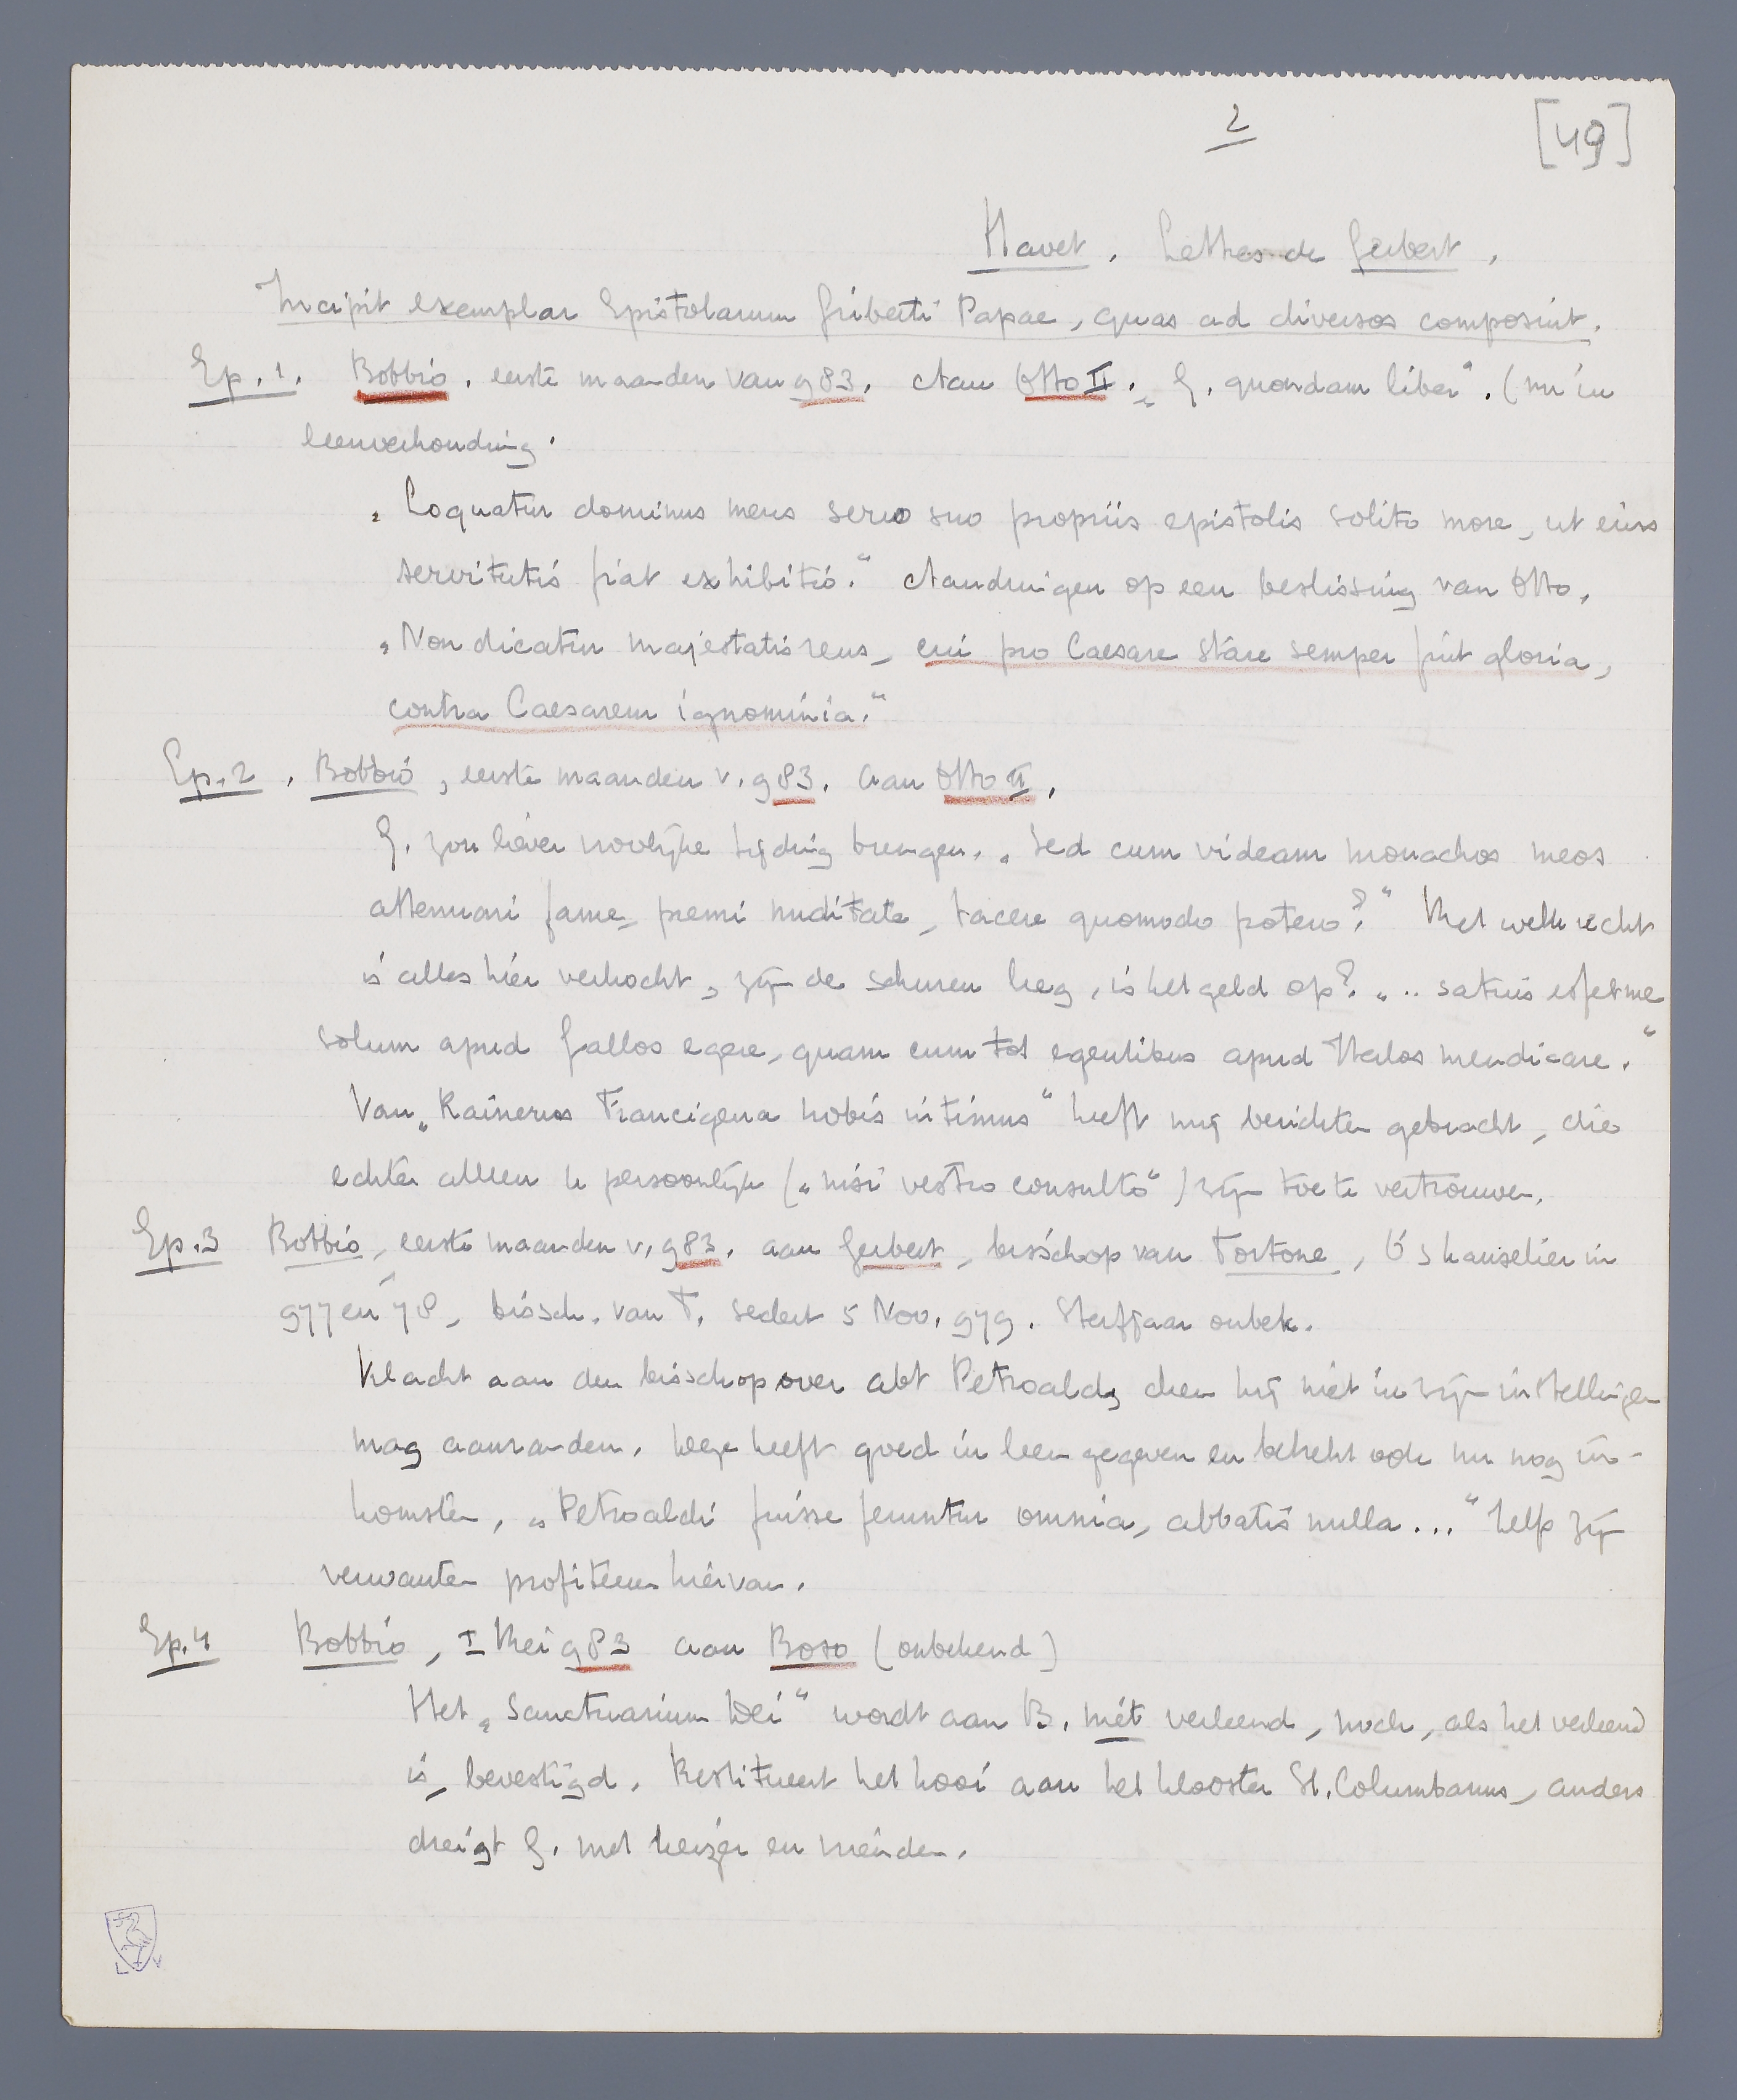 2
[49]
Havet, Lettres de Gerbert,
Incipit exemplar Epistolarum Girberti Papae, quas ad diversos composuit.
Ep. 1. Bobbio, eerste maanden van 983. Aan Otto II. „G. quondam liber". (nu in
leenverhouding.
„Loquatur dominus meus servo suo propriis epistolis solito more, ut eius
servitutis fiat exhibitio." Aandringen op een beslissing van Otto.
„Non dicatur majestatis reus, cui pro Caesare stare semper fuit gloria,
contra Caesarem ignominia."
Ep. 2. Bobbio, eerste maanden v. 983. aan Otto II.
G. zou liever vroolijke tijding brengen. „Sed cum videam monachos meos
attenuari fame, premi nuditate, tacere quomodo potero?" Met welk recht
is alles hier verkocht, zijn de schuren leeg, is het geld op? „.. satius esset me
solum apud Gallos egere, quam cum tot egentibus apud Italos mendicare."
Van „Rainerus Francigena nobis intimus" heeft mij berichten gebracht, die
echter alleen U persoonlijk („nisi vestro consulto") zijn toe te vertrouwen.
Ep. 3 Bobbio, eerste maanden v. 983. aan Gerbert, bisschop van Tortone, O's kanselier in
977 en 78, bissch. van T. sedert 5 Nov. 979. Sterfjaar onbek.
Klacht aan den bisschop over abt Petroald, dien hij niet in zijn instellingen
mag aanranden. Deze heeft goed in leen gegeven en betrekt ook nu nog in-
komsten. „Petroaldi fuisse feruntur omnia, abbatis nulla..." Zelfs zijn
verwanten profiteeren hiervan.
Ep. 4 Bobbio, I Mei 983 aan Boso (onbekend)
Het „Sanctuarium Dei" wordt aan B. niet verleend, noch, als het verleend
is, bevestigd. Restitueert het hooi aan het klooster St. Columbanus, anders
dreigt G. met keizer en vrienden.
L V